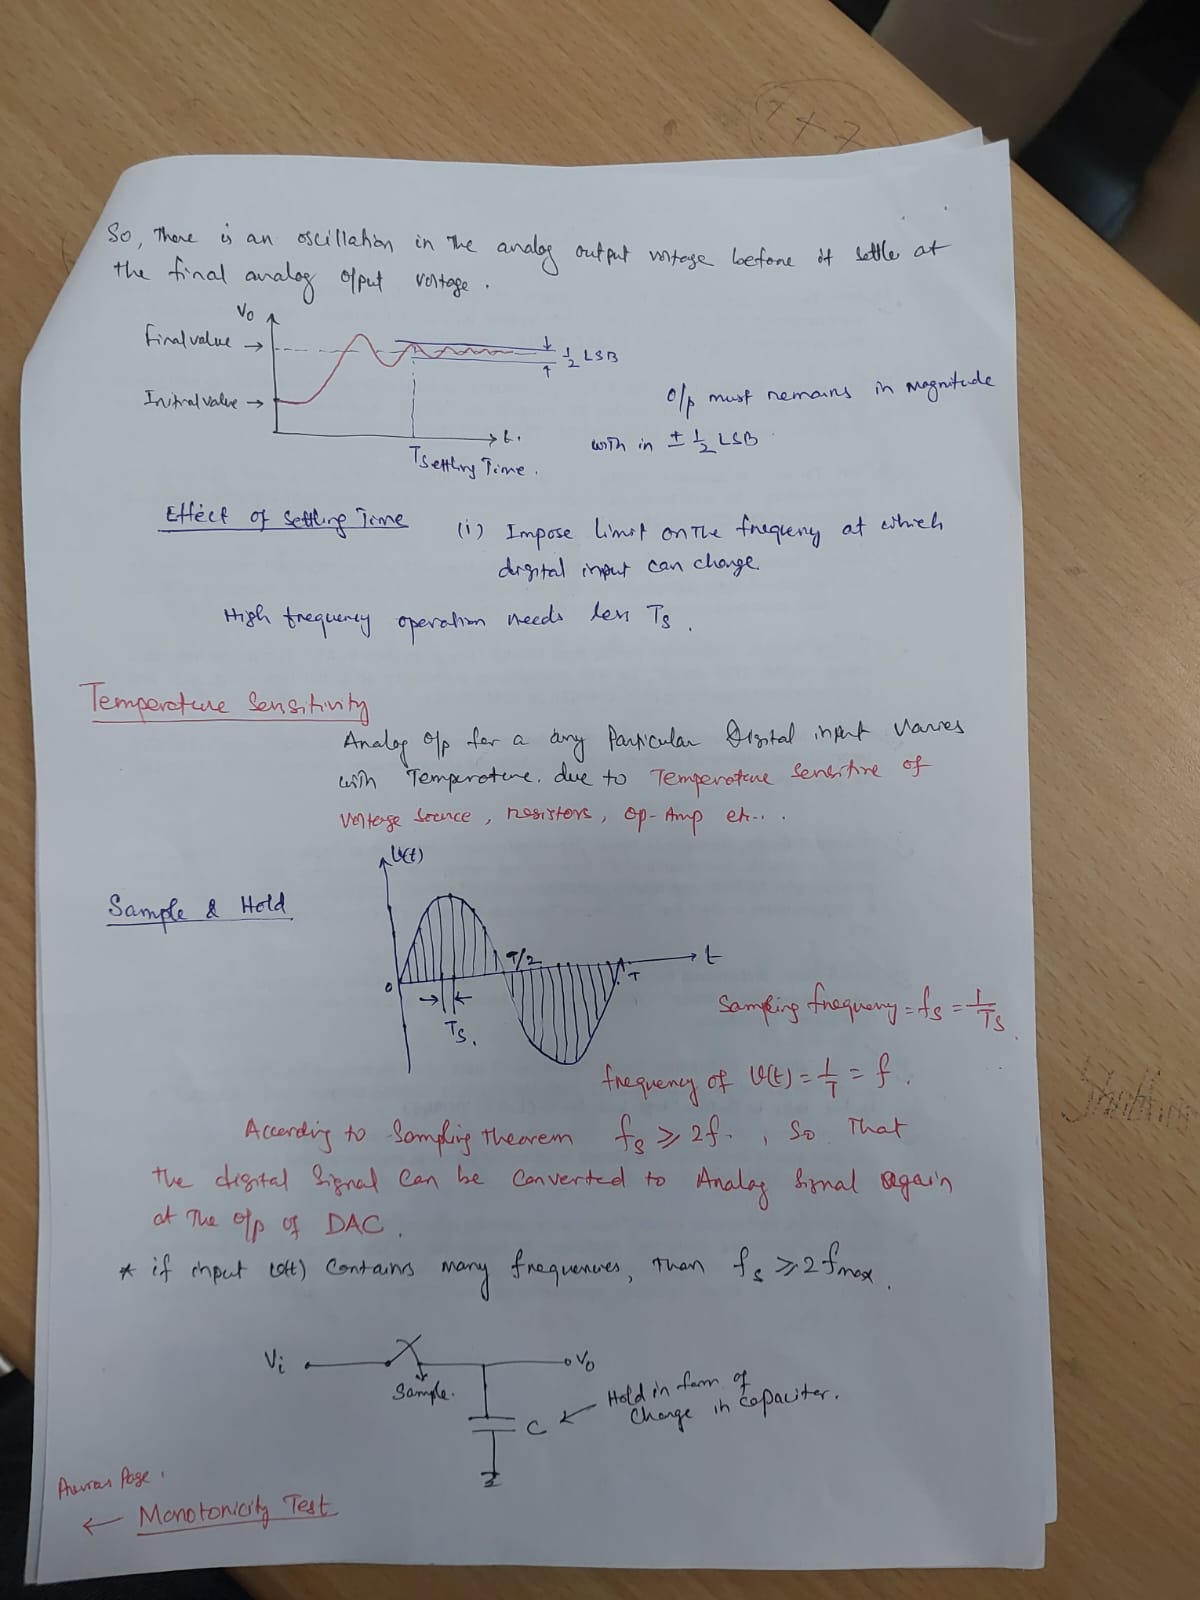 So, There is an oscillation in the analog output voltage before it settle at
the final analog o/put voltage.
Vo
Final value →
½ LSB
Initial value →
O/p must remains in magnitude
t.
with in ± ½ LSB
Tsettling Time.
Effect of Settling Time (i) Impose limit on the frequency at which
digital input can change
High frequency operation needs less Ts.
Temperature Sensitivity
Analog o/p for a any Particular Digital input Varies
with Temperature. due to Temperature Sensitive of
Voltage Source, resistors, Op-Amp etc...
V(t)
Sample & Hold
T/2
t
0
T
Ts.
Sampling frequency = fs = 1/Ts.
frequency of V(t) = 1/T = f.
According to Sampling theorem fs ⩾ 2f., So That
the digital Signal Can be Converted to Analog Signal again
at The o/p of DAC.
* if input v(t) Contains many frequencies, Than fs ⩾ 2 fmax.
Vi
Vo
Sample.
Hold in form of
C
Charge in Capaciter.
Page.
← Monotonicity Test